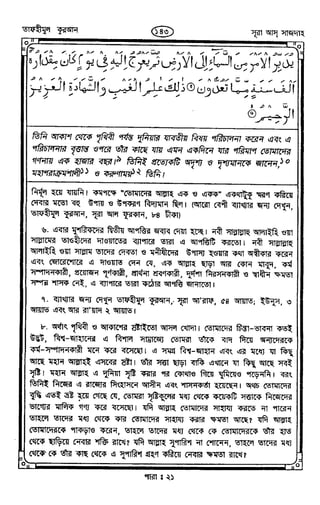 তাফহীমুল কুরআন
১৪৩
সূরা আস্ সাজদাহ
يُدَبِّرُ الْأَمْرَ مِنَ السَّمَاءِ إِلَى الْأَرْضِ ثُمَّ يَعْرُجُ إِلَيْهِ فِي يَوْمٍ كَانَ مِقْدَارُهُ
أَلْفَ سَنَةٍ مِّمَّا تَعُدُّونَ ۝ ذَٰلِكَ عَالِمُ الْغَيْبِ وَالشَّهَادَةِ الْعَزِيزُ
الرَّحِيمُ ۝
তিনি আকাশ থেকে পৃথিবী পর্যন্ত দুনিয়ার যাবতীয় বিষয় পরিচালনা করেন এবং এ
পরিচালনার বৃত্তান্ত ওপরে তাঁর কাছে যায় এমন একদিনে যার পরিমাপ তোমাদের
গণনায় এক হাজার বছর।৯ তিনিই প্রত্যেকটি অদৃশ্য ও দৃশ্যমানকে জানেন,১০
মহাপরাক্রমশালী১১ ও করুণাময়১২ তিনি।
নির্মূল হয়ে যায়নি। কমপক্ষে "তোমাদের আল্লাহ এক ও একক" একথাটুকু স্মরণ করিয়ে
দেবার মতো বহু উপায় ও উপকরণ বিদ্যমান ছিল। (আরো বেশী ব্যাখ্যার জন্য দেখুন,
তাফহীমুল কুরআন, সূরা আল ফুরকান, ৮৪ টীকা)
৬. এবার মুশরিকদের দ্বিতীয় আপত্তির জবাব দেয়া হচ্ছে। নবী সাল্লাল্লাহু আলাইহি ওয়া
সাল্লামের তাওহীদের দাওয়াতের ব্যাপারে তারা এ আপত্তিটি করতো। নবী সাল্লাল্লাহু
আলাইহি ওয়া সাল্লাম তাদের দেবতা ও মনীষীদের উপাস্য হওয়ার কথা অস্বীকার করেন
এবং জোরেশোরে এ দাওয়াত দেন যে, এক আল্লাহ ছাড়া আর কোন মাবুদ, কর্ম
সম্পাদনকারী, প্রয়োজন পূর্ণকারী, প্রার্থনা শ্রবণকারী, দুর্দশা নিরসনকারী ও স্বাধীন ক্ষমতা
সম্পন্ন শাসক নেই, এ ব্যাপারে তারা কঠোর আপত্তি জানাতো।
৭. ব্যাখ্যার জন্য দেখুন তাফহীমুল কুরআন, সূরা আ'রাফ, ৫৪ আয়াত; ইউনুস, ৩
আয়াত এবং আর রা'য়াদ ২ আয়াত।
৮. অর্থাৎ পৃথিবী ও আকাশের স্রষ্টাইতো আসল খোদা। তোমাদের চিন্তা-ভাবনা কতই
উদ্ভট, বিশ্ব-জাহানের এ বিশাল সাম্রাজ্যে তোমরা তাঁকে বাদ দিয়ে অন্যদেরকে
কর্ম-সম্পাদনকারী মনে করে বসেছো। এ সমগ্র বিশ্ব-জাহান এবং এর মধ্যে যা কিছু
আছে মহান আল্লাহই এসবের স্রষ্টা। তাঁর সত্তা ছাড়া বাকি এখানে যা কিছু আছে সবই
সৃষ্ট। মহান আল্লাহ এ দুনিয়া সৃষ্টি করার পর কোথাও গিয়ে ঘুমিয়েও পড়েননি। বরং
তিনিই নিজের এ রাজ্যের সিংহাসনে আসীন এবং শাসনকর্তা হয়েছেন। অথচ তোমাদের
বুদ্ধি এতই ভ্রষ্ট হয়ে গেছে যে, তোমরা সৃষ্টিকুলের মধ্য থেকে কয়েকটি সত্তাকে নিজেদের
ভাগ্যের মালিক গণ্য করে বসেছো। যদি আল্লাহ তোমাদের সাহায্য করতে না পারেন
তাহলে তাদের মধ্য থেকে কার তোমাদের সাহায্য করার ক্ষমতা আছে? যদি আল্লাহ
তোমাদেরকে পাকড়াও করেন, তাহলে তাদের মধ্য থেকে কে তোমাদেরকে তাঁর হাত
থেকে ছাড়িয়ে নেবার শক্তি রাখে? যদি আল্লাহ সুপারিশ না শোনেন, তাহলে তাদের মধ্য
থেকে কে তাঁর কাছ থেকে এ সুপারিশ গ্রহণ করিয়ে নেবার ক্ষমতা রাখে?
পারা : ২১